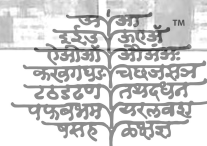 अ आ TM
इईउ ऊए
ऐओऔ ऑअंअः
कखगघङ चछजझञ
टठडढण तथदधन
पफबभम यरलवश
षसह ळक्षज्ञ